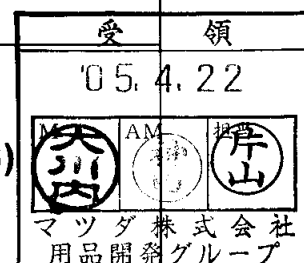 受領
'05.4.22
M AM 担当
大川内 片山
)
マツダ株式会社
用品開発グループ